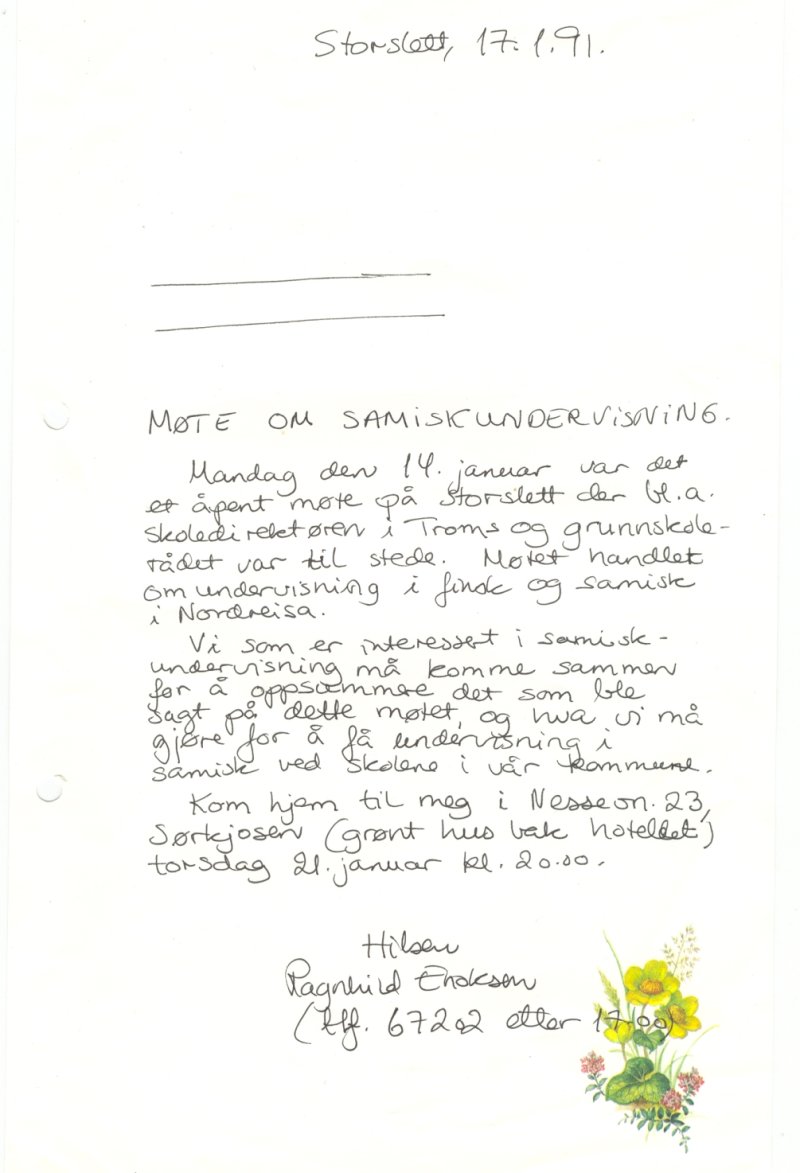 Storslett, 17.1.91.
MØTE OM SAMISKUNDERVISNING.
Mandag den 14. januar var det
et åpent møte på Storslett der bl.a.
skoledirektøren i Troms og grunnskole-
rådet var til stede. Møtet handlet
om undervisning i finsk og samisk
i Nordreisa.
Vi som er interessert i samisk-
undervisning må komme sammen
for å oppsummere det som ble
sagt på dette møtet, og hva vi må
gjøre for å få undervisning i
samisk ved skolene i vår kommune.
Kom hjem til meg i Nessevn. 23,
Sørkjosen (grønt hus bak hotellet)
torsdag 21. januar kl. 20.00.
Hilsen
Ragnhild Enoksen
(tlf. 67202 etter 17.00)